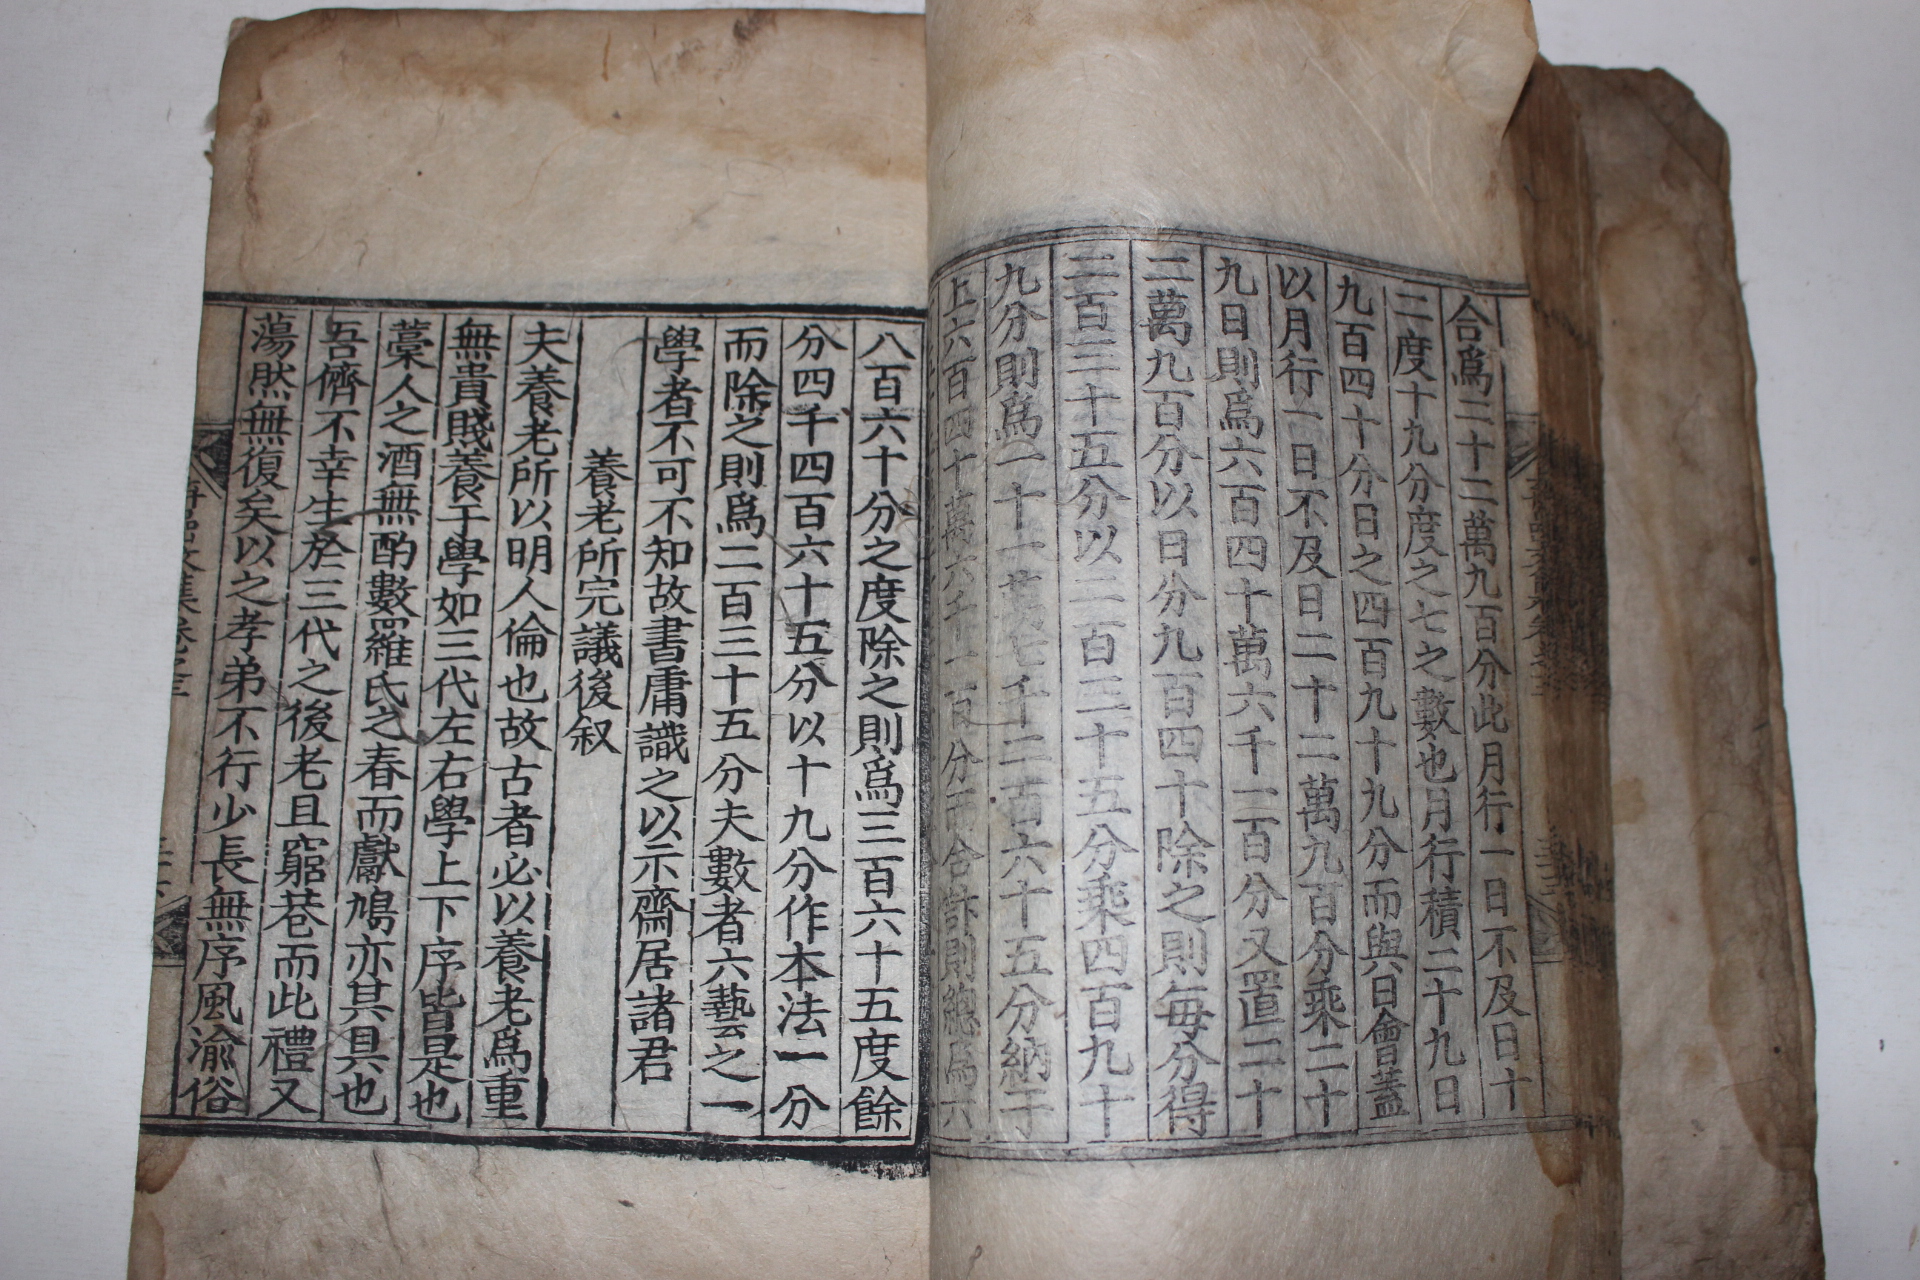 合爲二十二萬九百分此月行一日不及日十
二度十九分度之七之數也月行積二十九日
九百四十分日之四百九十九分而與日會蓋
以月行一日不及日二十二萬九百分乘二十
九日則爲六百四十萬六千一百分又置二十
二萬九百分以日分九百四十除之則每分得
二百三十五分以二百三十五分乘四百九十
九分則爲一十一萬七千二百六十五分納于
上六百四十萬六千一百分而合計則總爲六
八百六十分之度除之則爲三百六十五度餘
分四千四百六十五分以十九分作本法一分
而除之則爲二百三十五分夫數者六藝之一
學者不可不知故書庸識之以示齋居諸君
養老所完議後叙
夫養老所以明人倫也故古者必以養老爲重
無貴賤養于學如三代左右學上下序皆是也
藁人之酒無酌數羅氏之春而獻鳩亦其具也
吾儕不幸生於三代之後老且窮巷而此禮又
蕩然無復矣以之孝弟不行少長無序風渝俗
文集卷之三